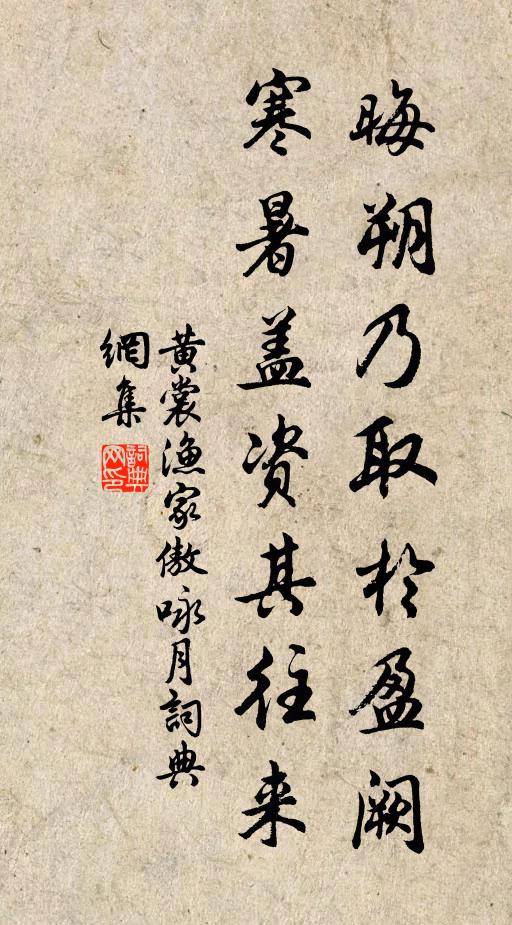 晦朔乃取於盈阙
寒暑盖资其往来
黄裳渔家傲咏月詞典
網集
詞典
网印